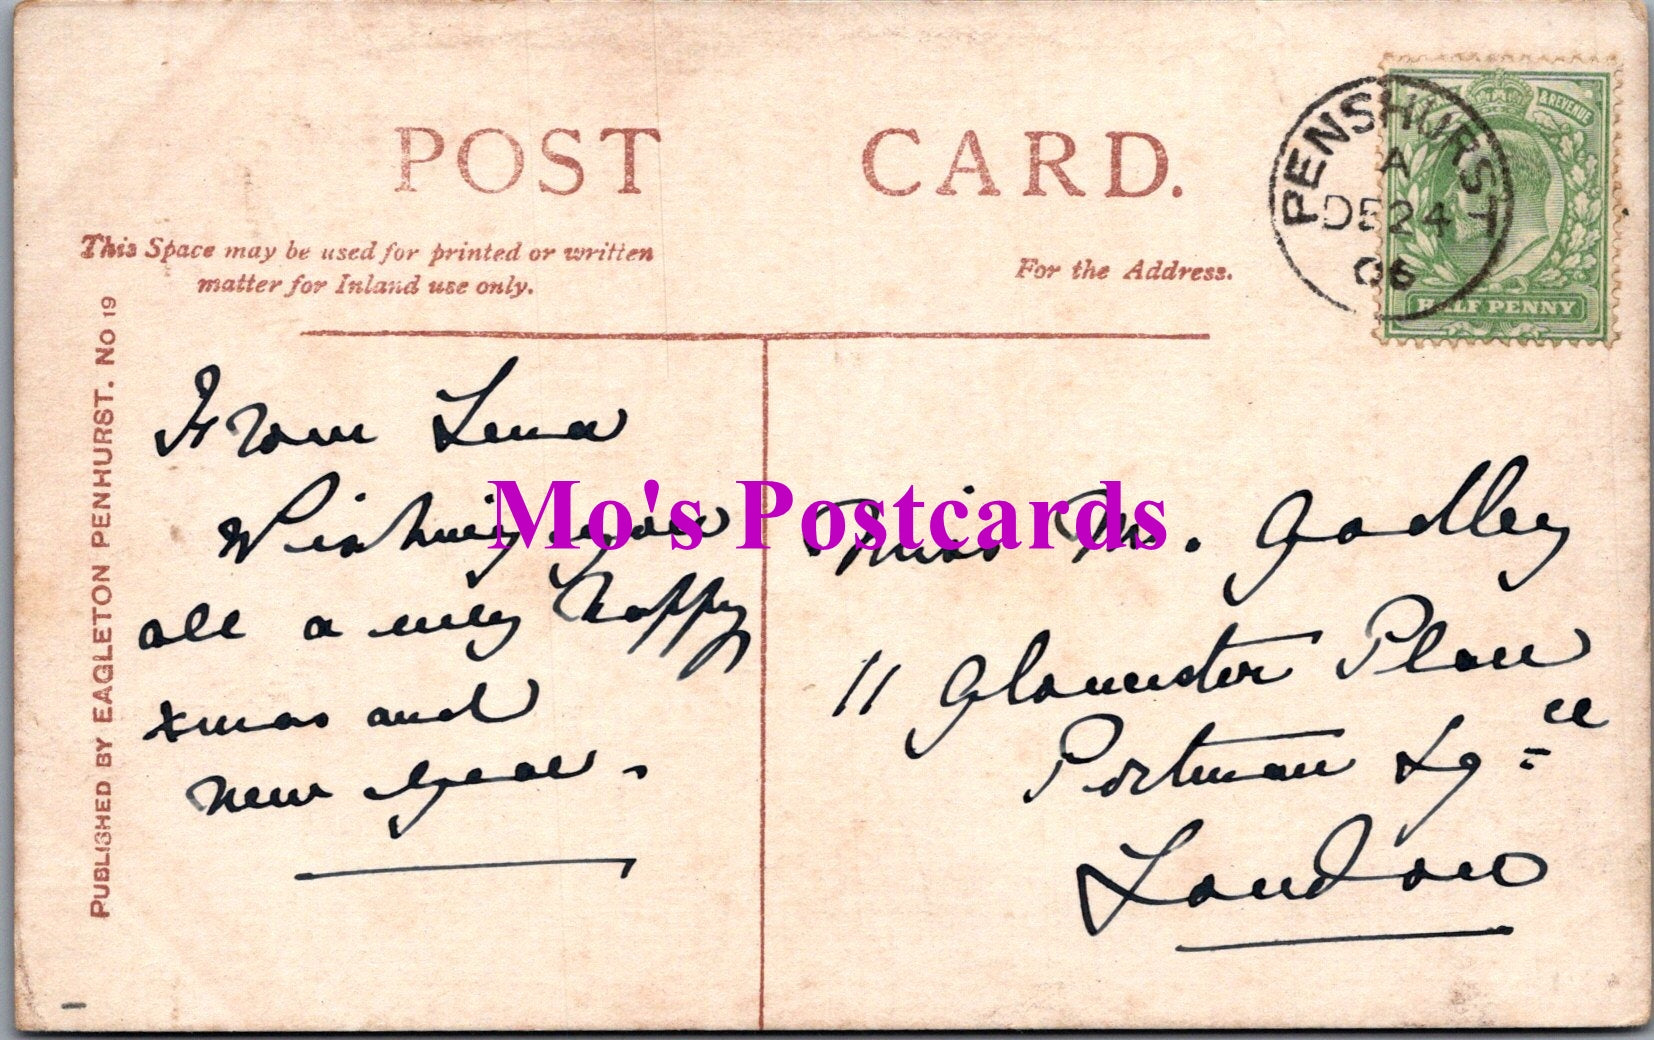 POST CARD.
This Space may be used for printed or written
matter for Inland use only.
For the Address.
PENSHURST
A
DE 24
06
& REVENUE
HALF PENNY
PUBLISHED BY EAGLETON PENHURST. NO 19
From Lena
Wishing you
all a very happy
xmas and
New Year.
Mo's Postcards
Miss M. Godley
11 Gloucester Place
Portman Sq re
London